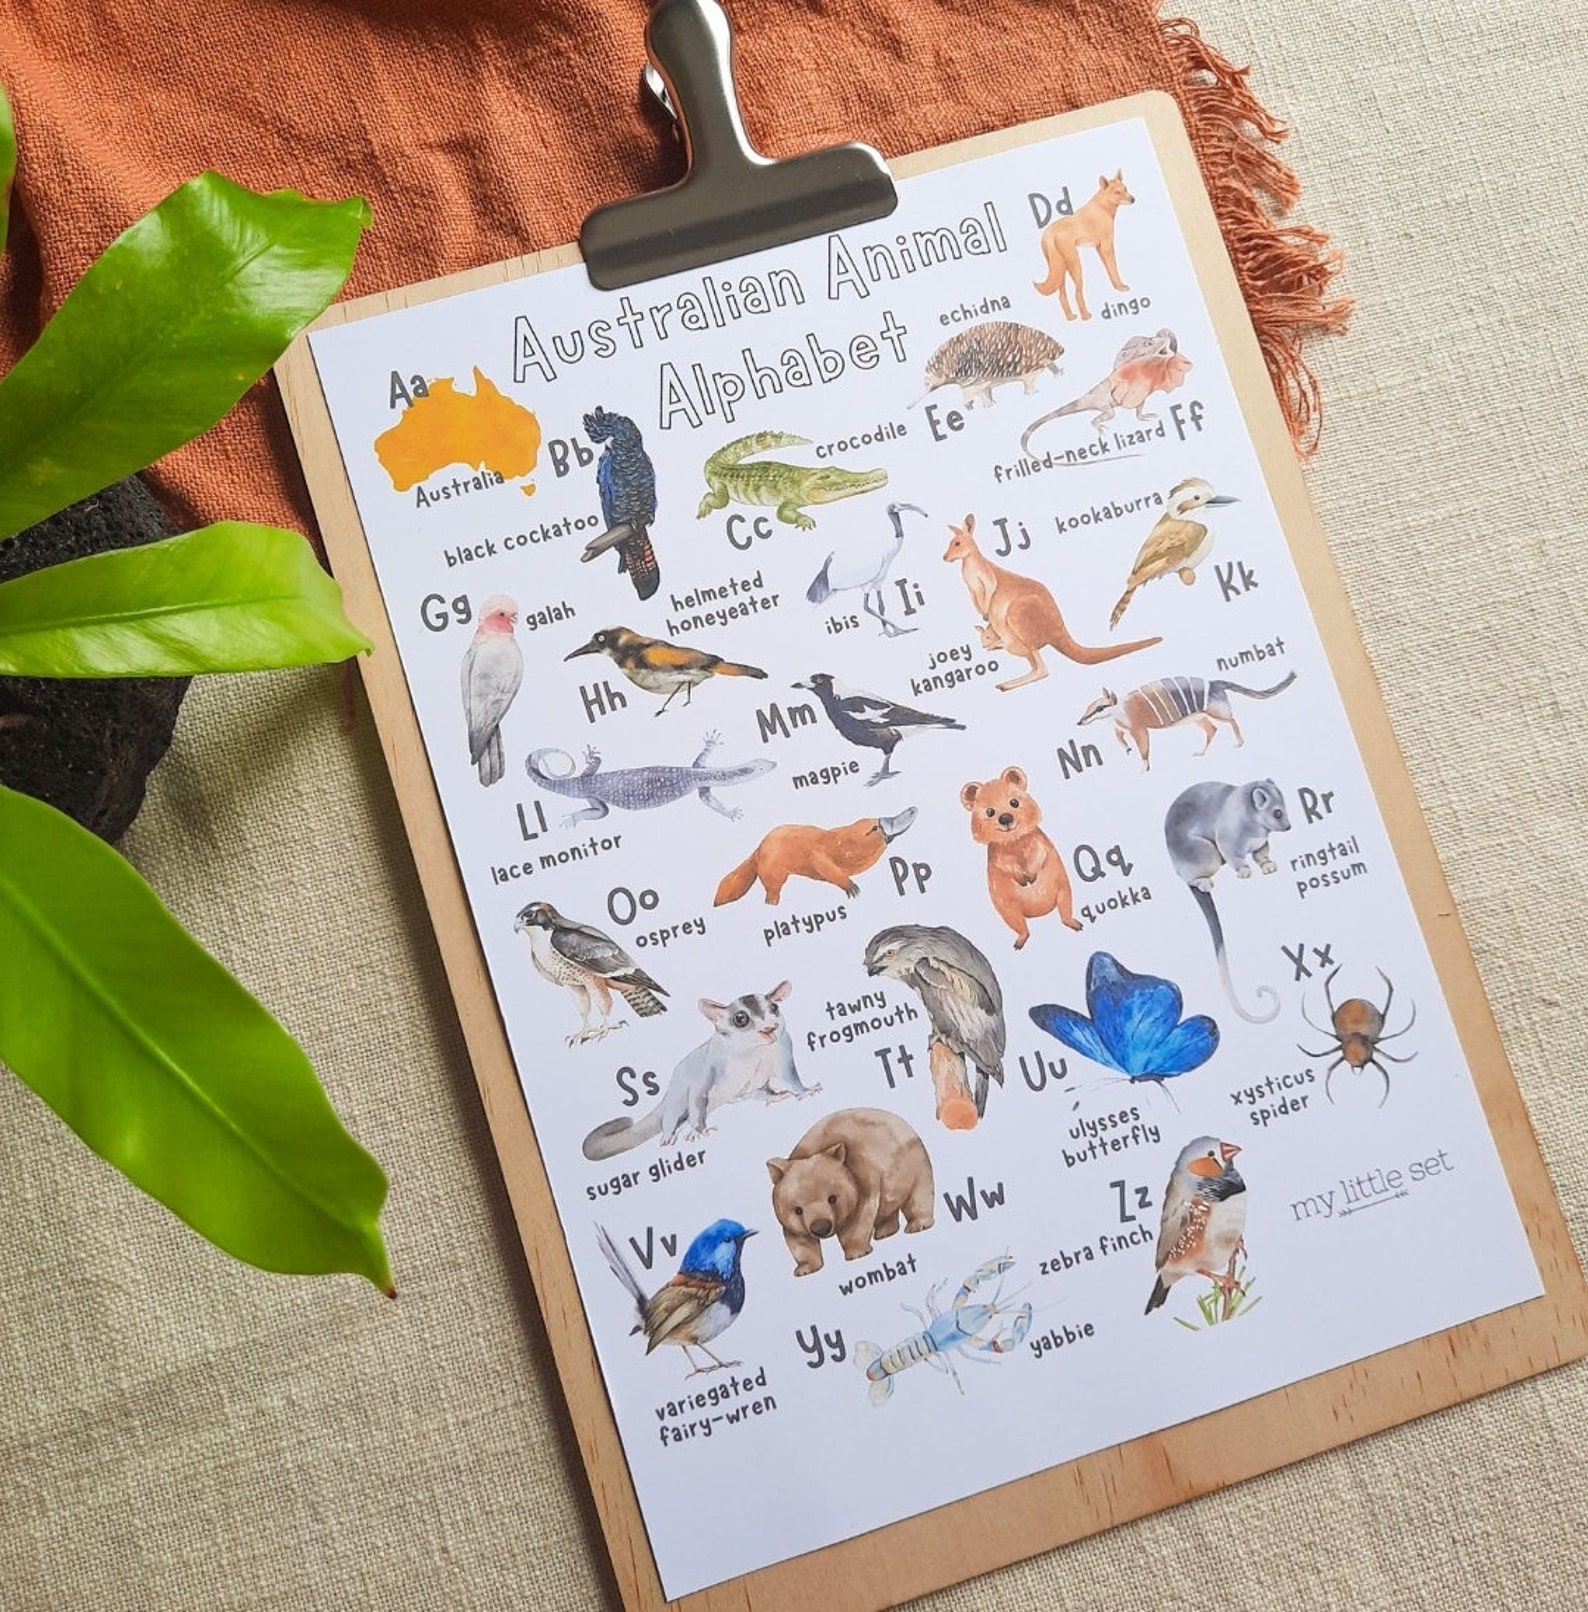 Australian Animal
Alphabet
Aa
Australia
Bb
black cockatoo
Cc
crocodile
Dd
dingo
echidna
Ee
frilled-neck lizard
Ff
Gg
galah
helmeted
honeyeater
Hh
ibis
Ii
Jj
joey
kangaroo
kookaburra
Kk
Ll
lace monitor
Mm
magpie
numbat
Nn
Oo
osprey
Pp
platypus
Qq
quokka
Rr
ringtail
possum
Ss
sugar glider
tawny
frogmouth
Tt
Uu
ulysses
butterfly
Vv
variegated
fairy-wren
Ww
wombat
Xx
xysticus
spider
Yy
yabbie
Zz
zebra finch
my little set